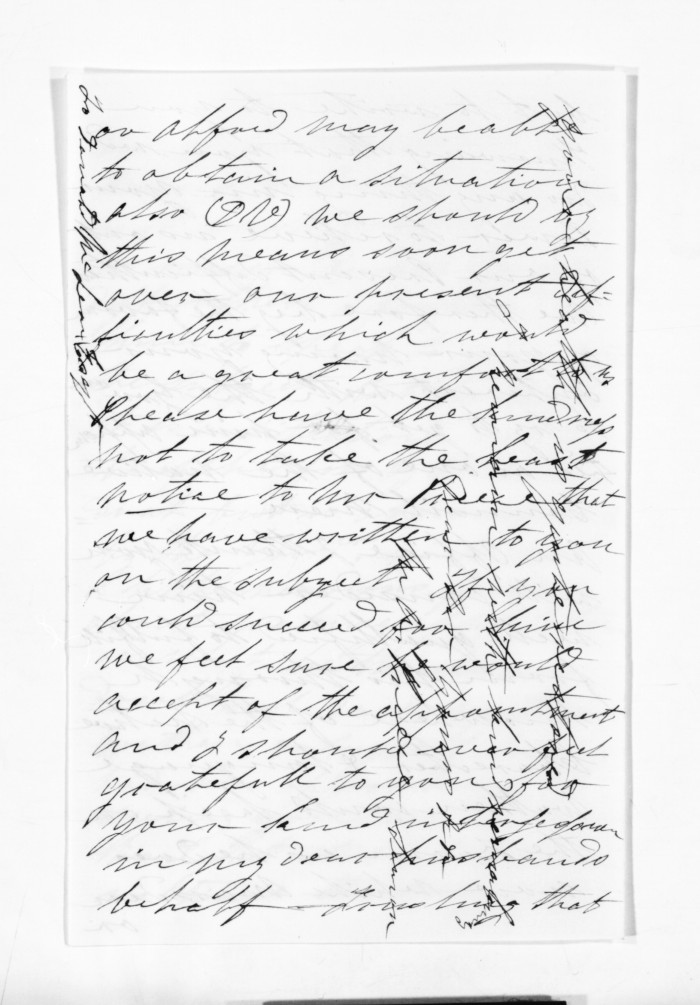 or afford may be able
to obtain a situation
also (DV) we should by
this means soon get
over our present dif-
ficulties which would
be a great comfort to us
Please have the kindness
not to take the least
notice to Mr that
we have written to you
on the subject If you
could succeed for him
we feel sure he would
accept of the appointment
and I should ever feel
gratefull to you for
your kind intercession
in my dear husbands
behalf - Trusting that
you will
remain with kind
Dear Sir
to Donald McLean Esqr